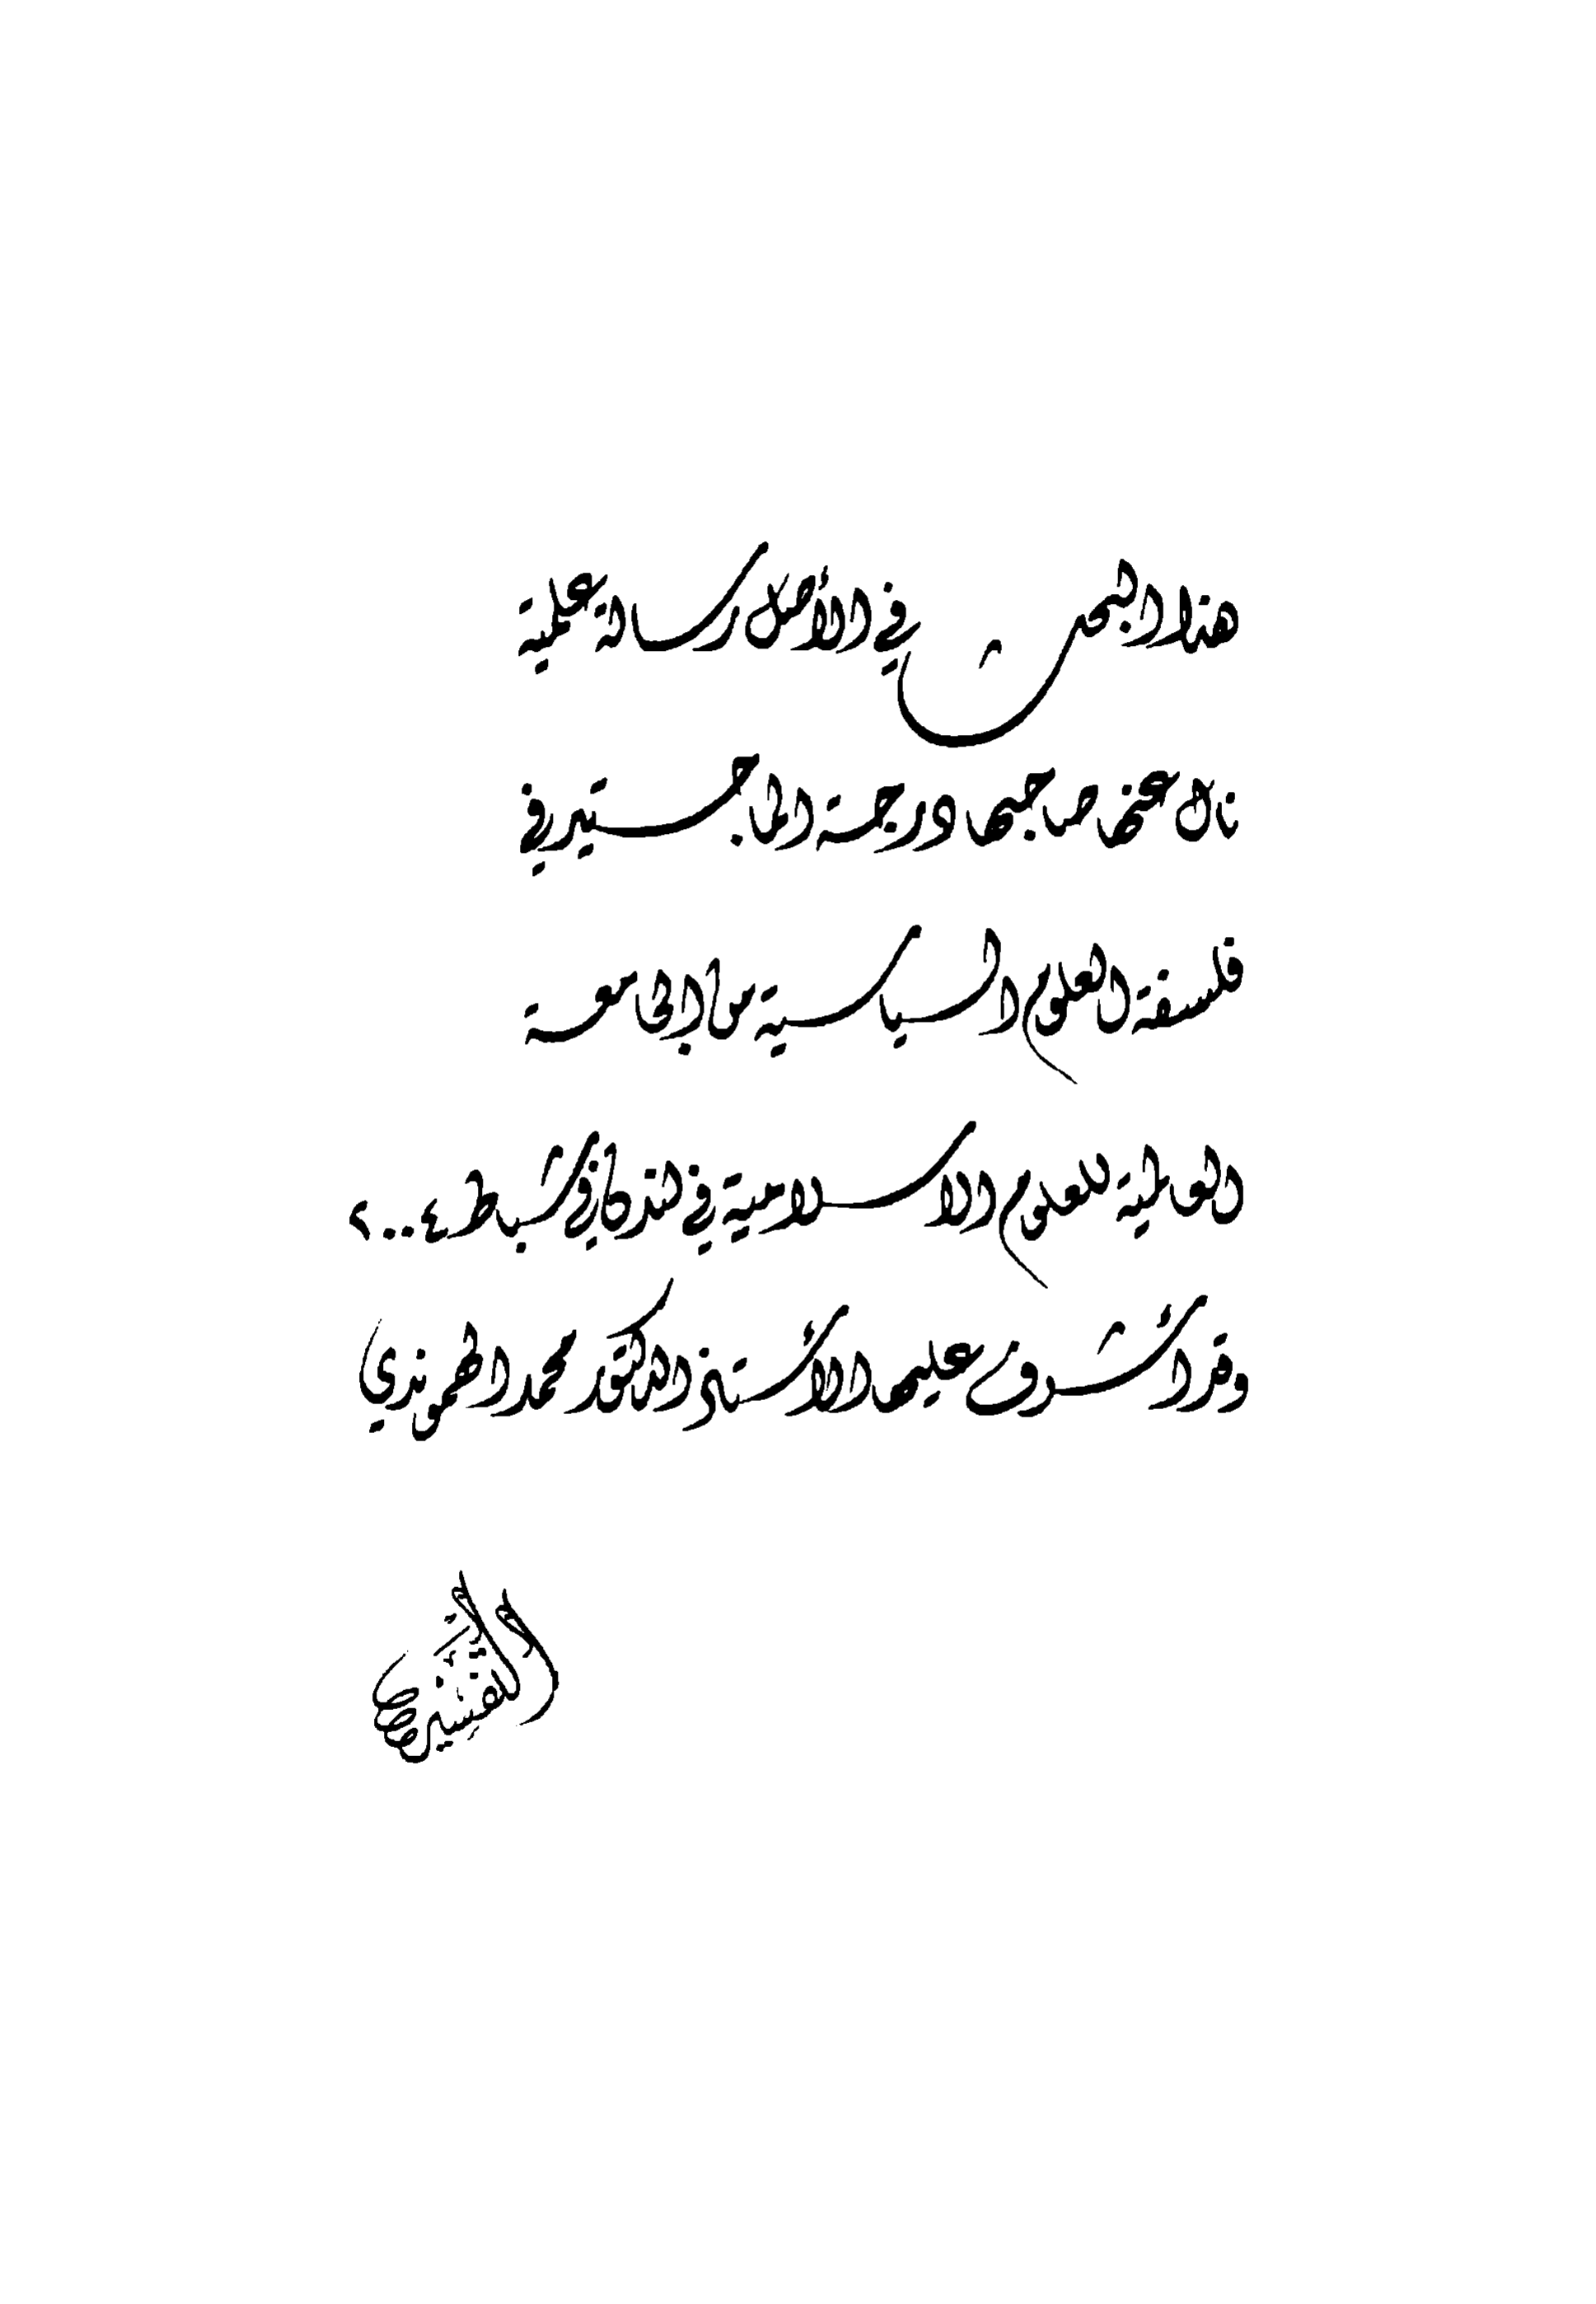 هذا البحث في الأصل رسالة علمية
نال عنها صاحبها درجة الماجستير في
فلسفة العلوم السياسية من الجامعة
العالمية للعلوم الاسلامية في شباط ٢٠٠٤
وقد أشرف عليها الأستاذ الدكتور محمد